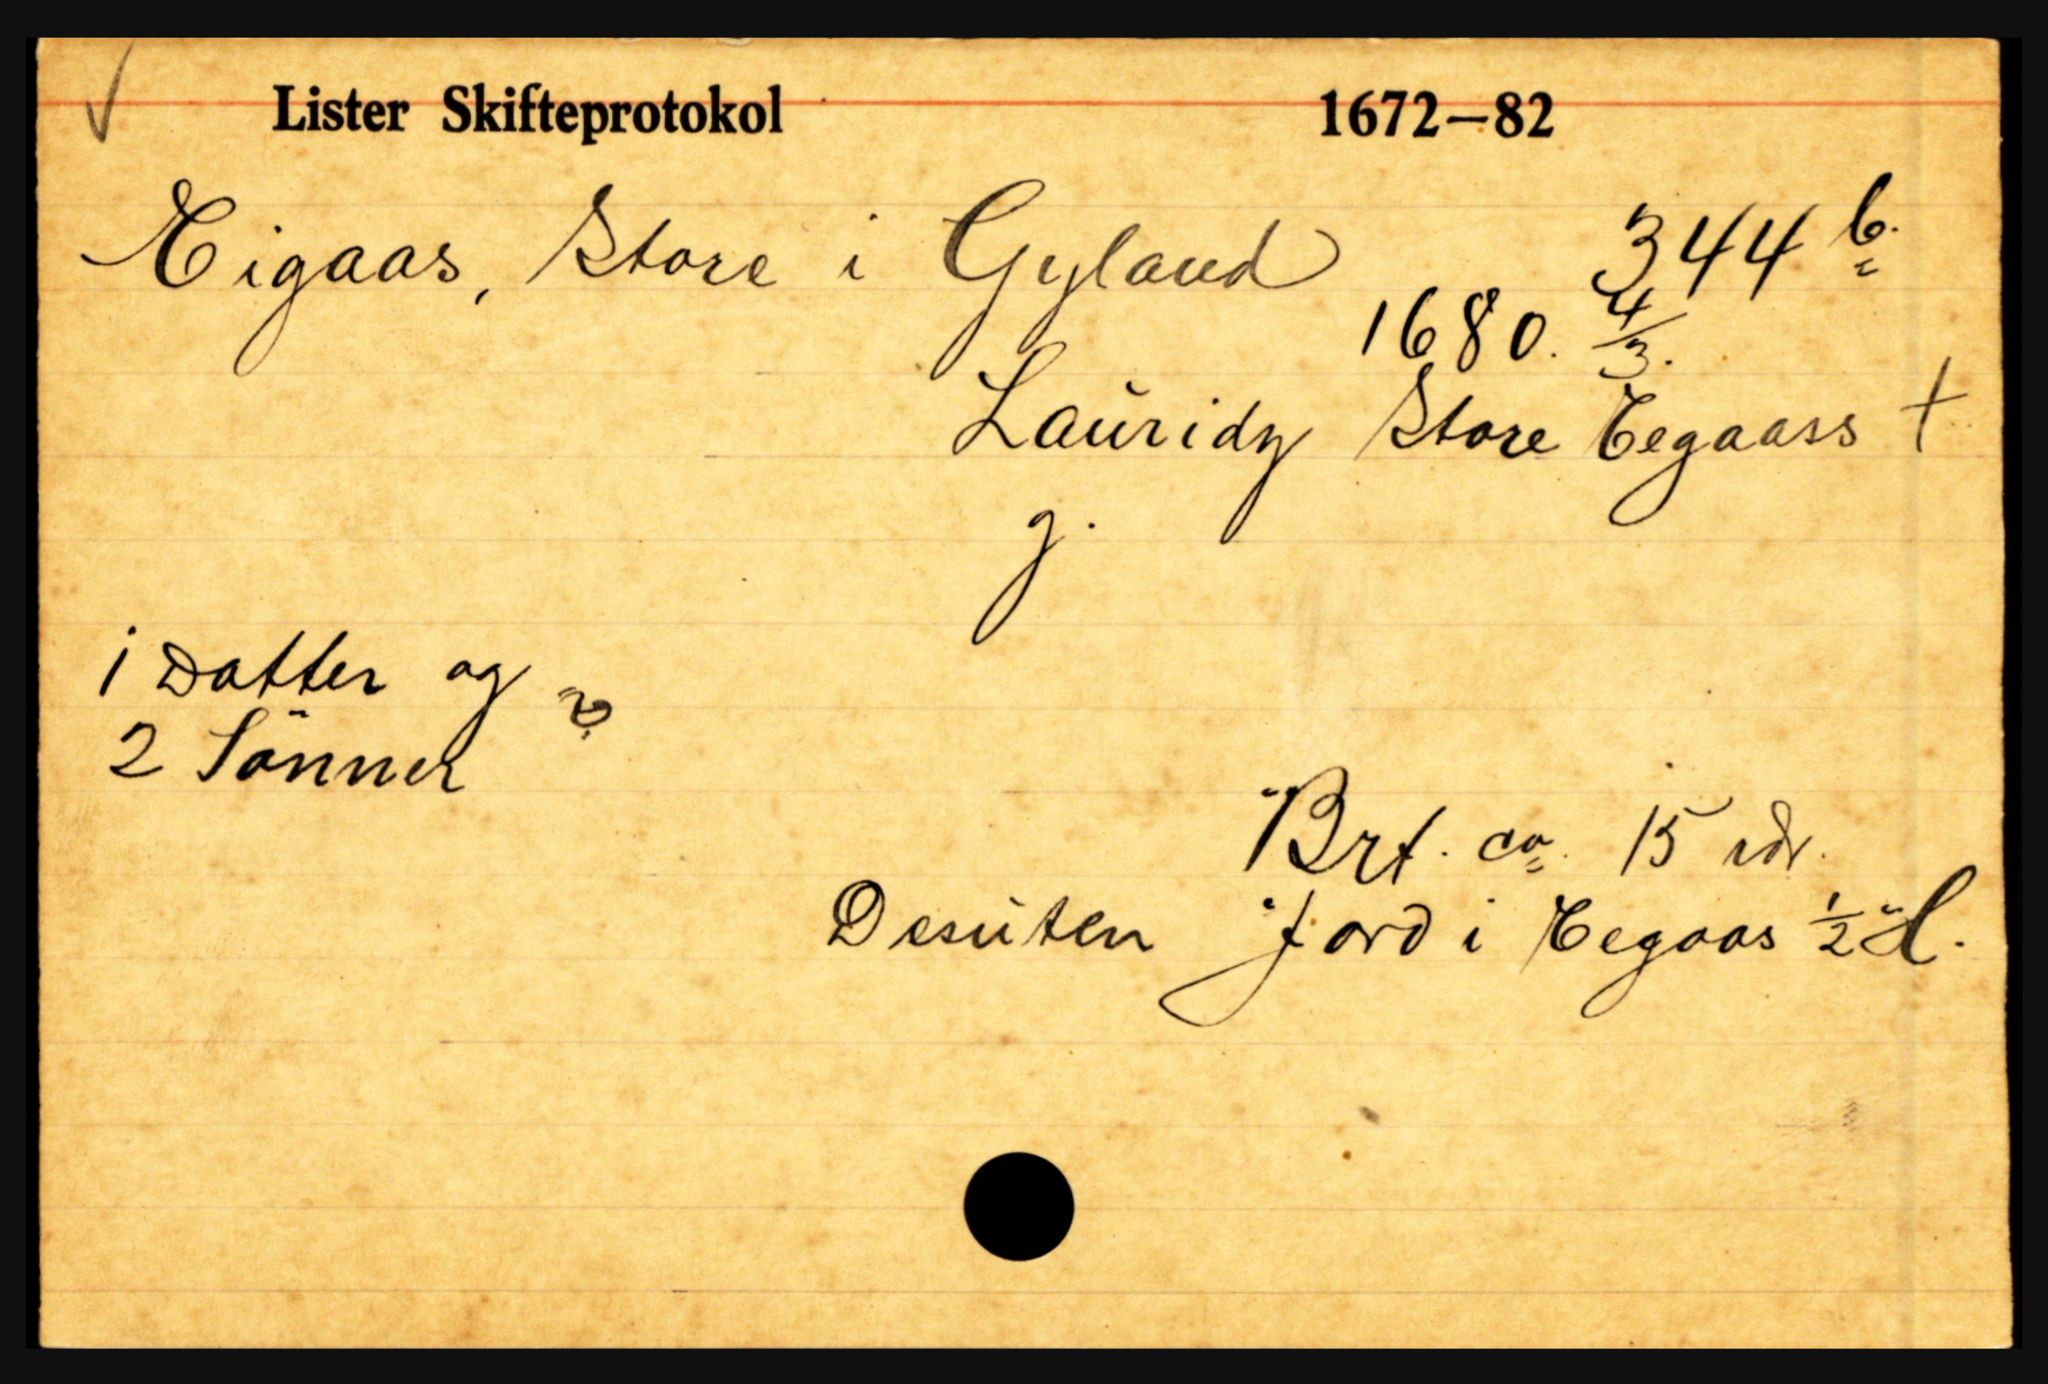 Lister Skifteprotokol 1672—82
Eigaas, Store i Gyland 344 b.
1680. 4/3.
Lauridz Store Eegaass †
g.
1 Datter og
2 Sönner ?
Brt. ca. 15 rdr.
Desuten Jord i Eegaas 1/2 H.